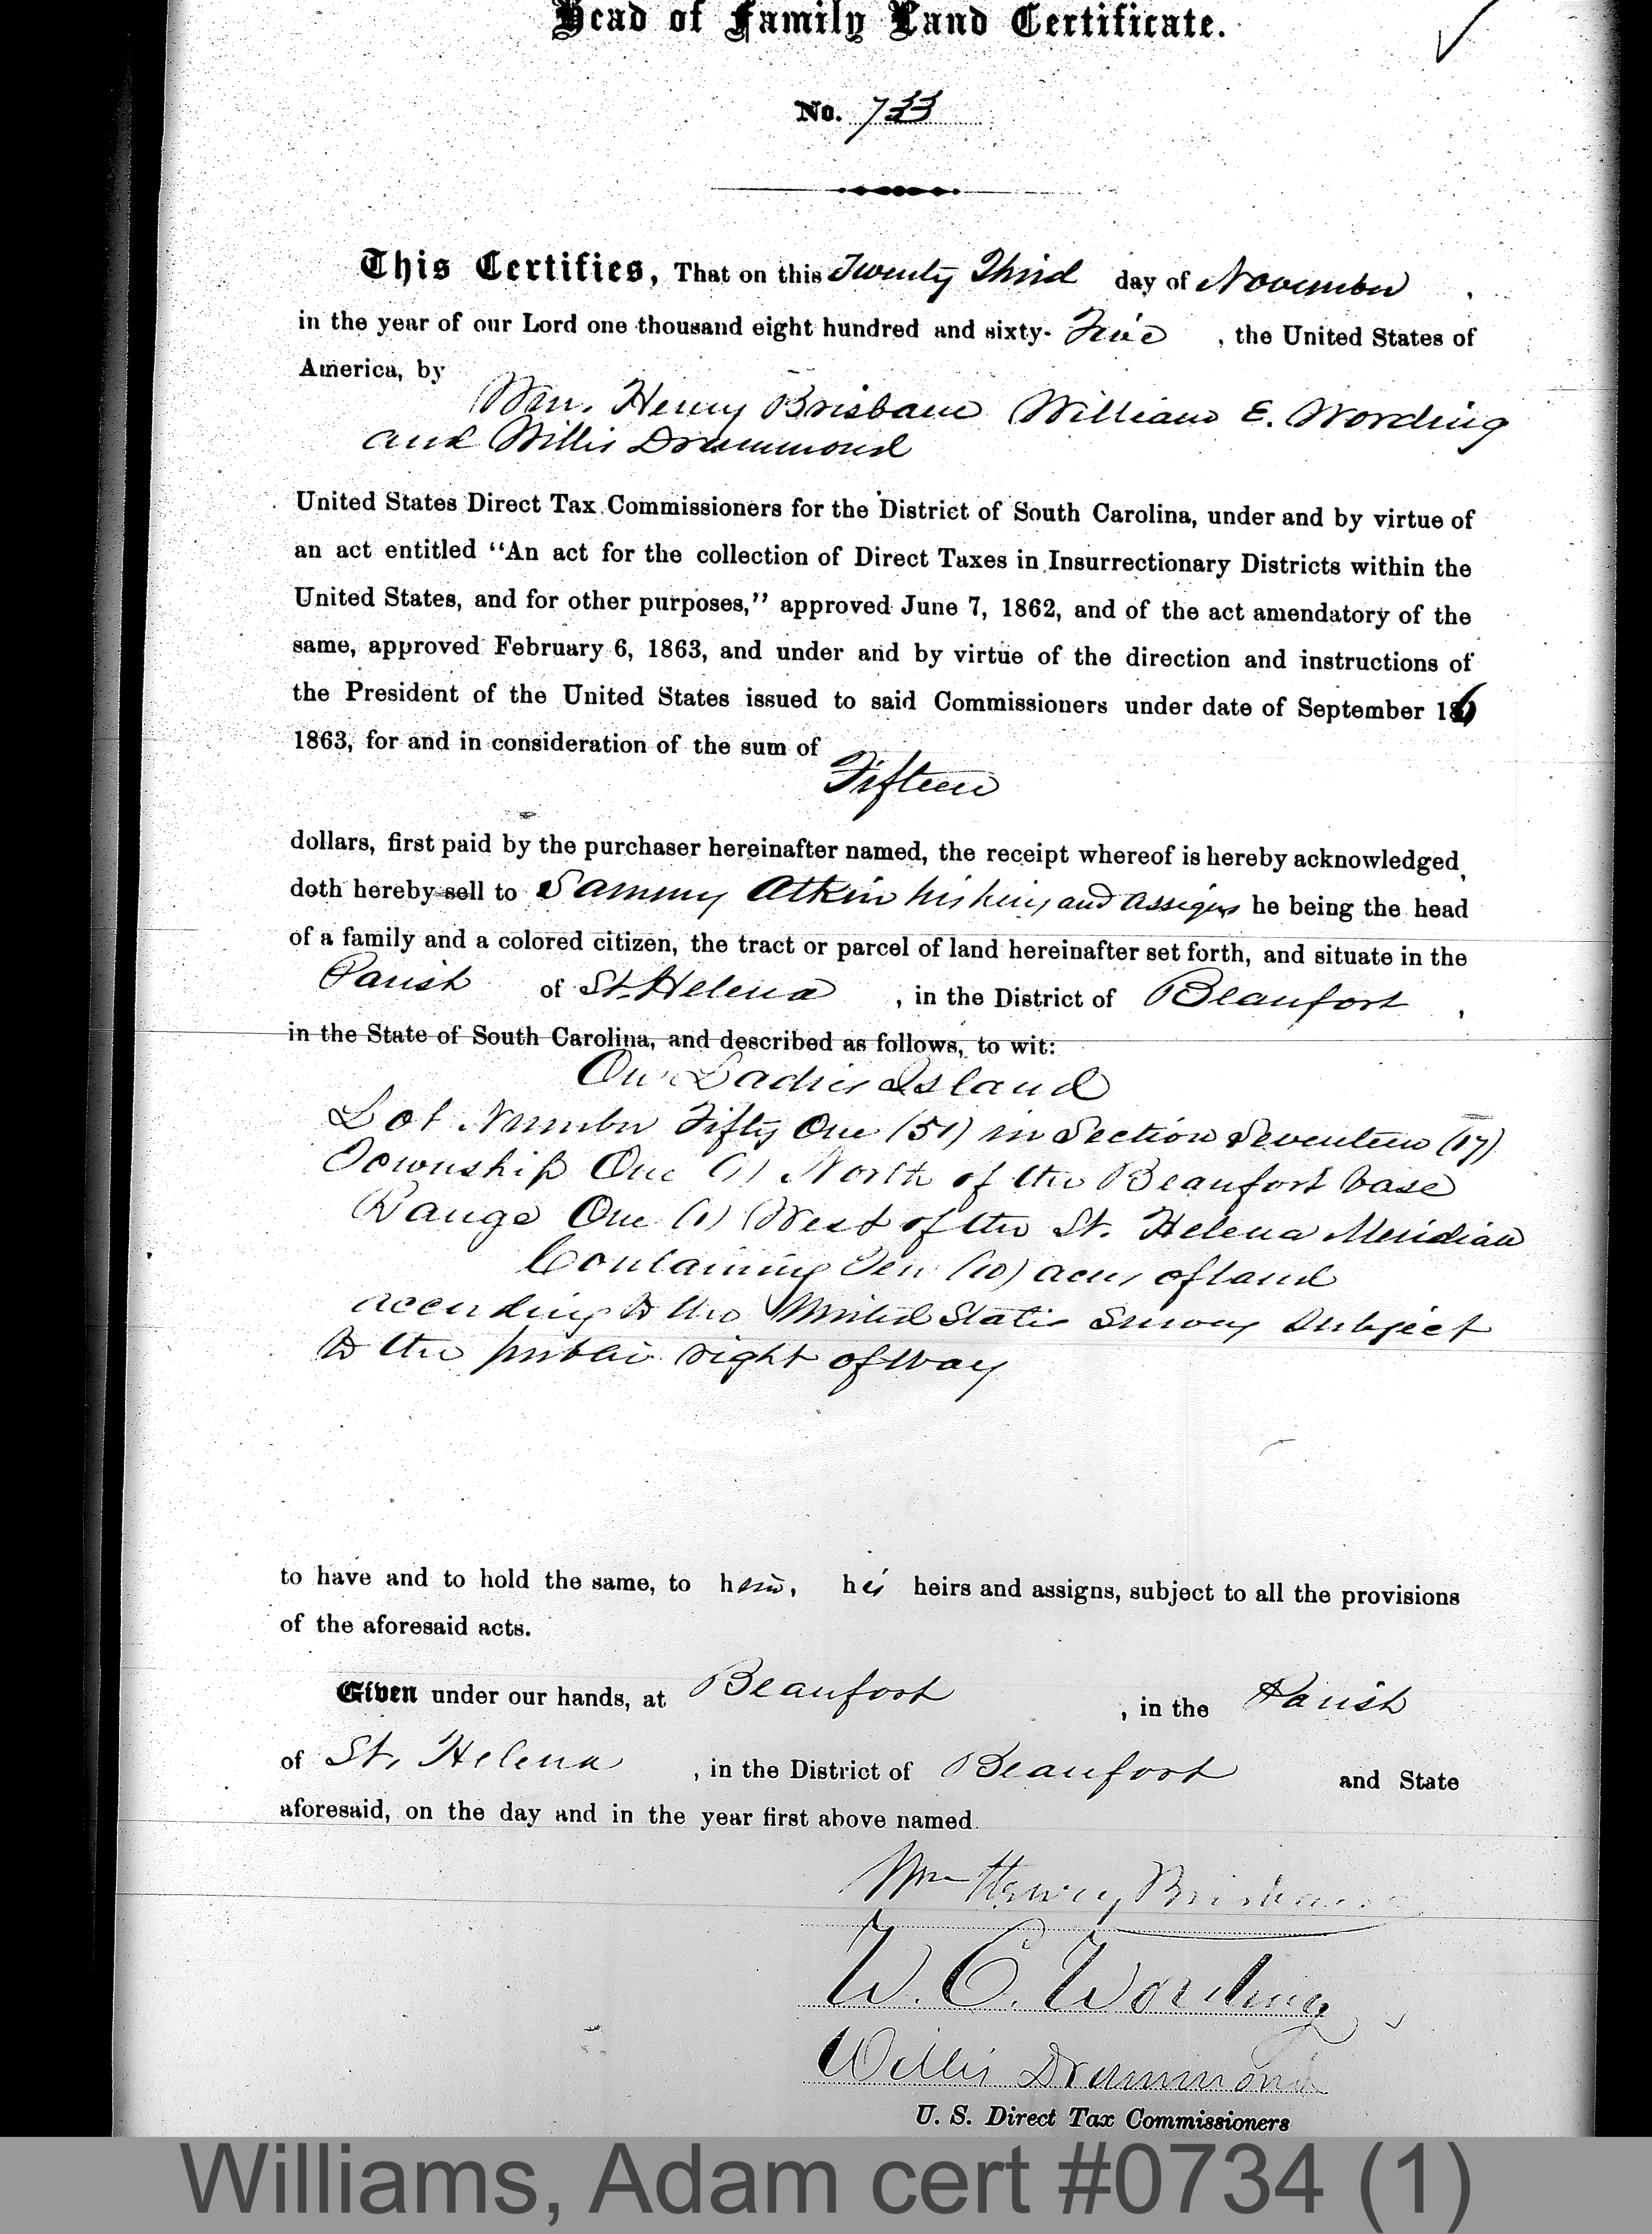 Head of Family Land Certificate.
No. 733
This Certifies, That on this Twenty Third day of November ,
in the year of our Lord one thousand eight hundred and sixty- Five , the United States of
America, by
Wm. Henry Brisbane William E. Wording
and Willis Drummond
United States Direct Tax Commissioners for the District of South Carolina, under and by virtue of
an act entitled "An act for the collection of Direct Taxes in Insurrectionary Districts within the
United States, and for other purposes," approved June 7, 1862, and of the act amendatory of the
same, approved February 6, 1863, and under and by virtue of the direction and instructions of
the President of the United States issued to said Commissioners under date of September 16
1863, for and in consideration of the sum of
Fifteen
dollars, first paid by the purchaser hereinafter named, the receipt whereof is hereby acknowledged,
doth hereby sell to Sammy Atkin his heirs and assigns he being the head
of a family and a colored citizen, the tract or parcel of land hereinafter set forth, and situate in the
Parish of St. Helena , in the District of Beaufort ,
in the State of South Carolina, and described as follows, to wit:
On Ladies Island
Lot Number Fifty One (51) in Section Seventeen (17)
Township One (1) North of the Beaufort base
Range One (1) West of the St. Helena Meridian
Containing Ten (10) acres of land
according to the United States Survey Subject
to the public right of way
to have and to hold the same, to him, his heirs and assigns, subject to all the provisions
of the aforesaid acts.
Given under our hands, at Beaufort , in the Parish
of St. Helena , in the District of Beaufort and State
aforesaid, on the day and in the year first above named.
Wm Henry Brisbane
W. E. Wording
Willis Drummond
U. S. Direct Tax Commissioners
Williams, Adam cert #0734 (1)